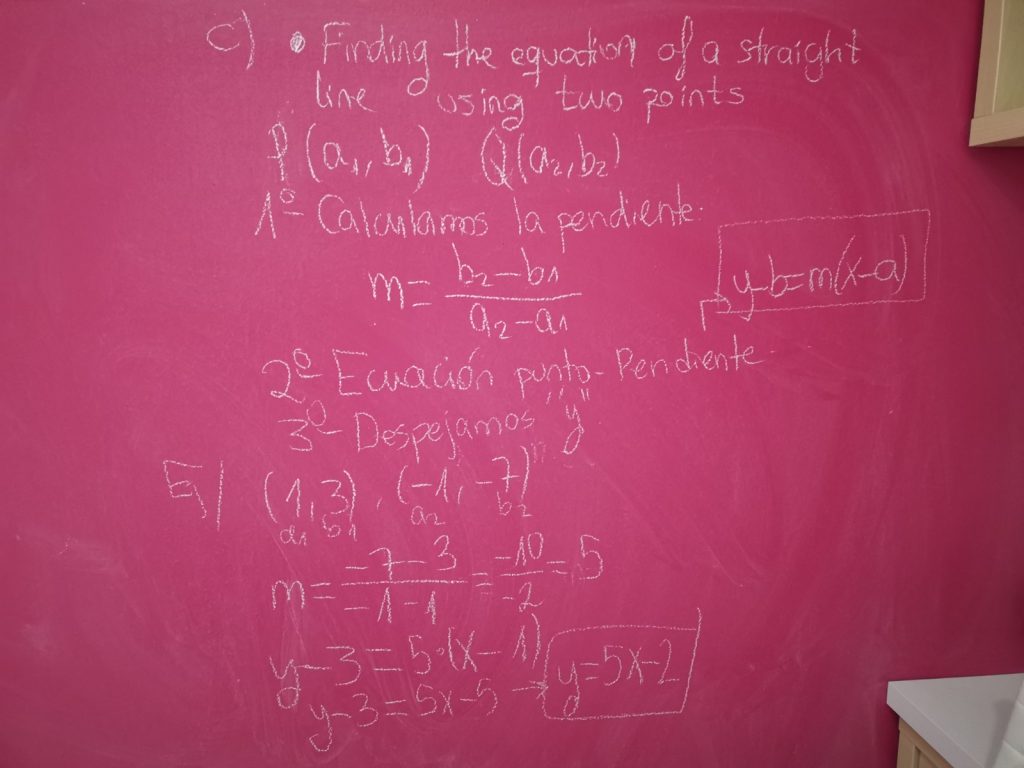 c) • Finding the equation of a straight
line using two points
P (a₁, b₁) Q(a₂, b₂)
1º- Calculamos la pendiente.
m = (b₂ - b₁)/(a₂ - a₁)
y-b=m(x-a)
2º- Ecuación punto-Pendiente.
3º- Despejamos "y"
Ej/ (1, 3), (-1, -7)
a₁ b₁ a₂ b₂
m = (-7-3)/(-1-1) = -10/-2 = 5
y-3=5·(x-1)
y-3=5x-5 → y=5x-2